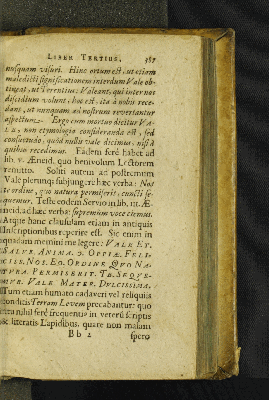 LIBER TERTIUS. 387
nusquam visuri. Hinc ortum est, ut etiam
maledicti significationem interdum Vale ob-
tineat, ut Terentius: Valeant, qui inter nos
discidium volunt, hoc est, ita à nobis rece-
dant, ut nunquam ad nostrum revertantur
aspectum. Ergo cum mortuo dicitur VA-
LE, non etymologia consideranda est, sed
consuetudo, quòd nullis vale dicimus, nisi à
quibus recedimus. Eadem ferè habet ad
lib. v. Æneid. quo benivolum Lectorem
remitto. Soliti autem ad postremum
Vale plerunq; subjungere hæc verba: Nos
te ordine, quo natura permiserit, cuncti se-
quemur. Teste eodem Servio in lib. III. Æ-
neid. ad hæc verba: supremùm voce ciemus.
Atque hanc clausulam etiam in antiquis
Inscriptionibus reperire est. Sic enim in
quadam memini me legere: VALE ET.
SALVE. ANIMA. O. OPPIÆ. FELI-
CISS. NOS. EO. ORDINE. QUO. NA-
TVRA. PERMISERIT. TE. SEQVE-
MVR. VALE. MATER. DVLCISSIMA.
Tum etiam humato cadaveri vel reliquiis
conditis Terram Levem precabantur: quo
nihil ferè frequentio in veterũ scriptis
ac literatis Lapidibus. quare non malam
B b 2 spero